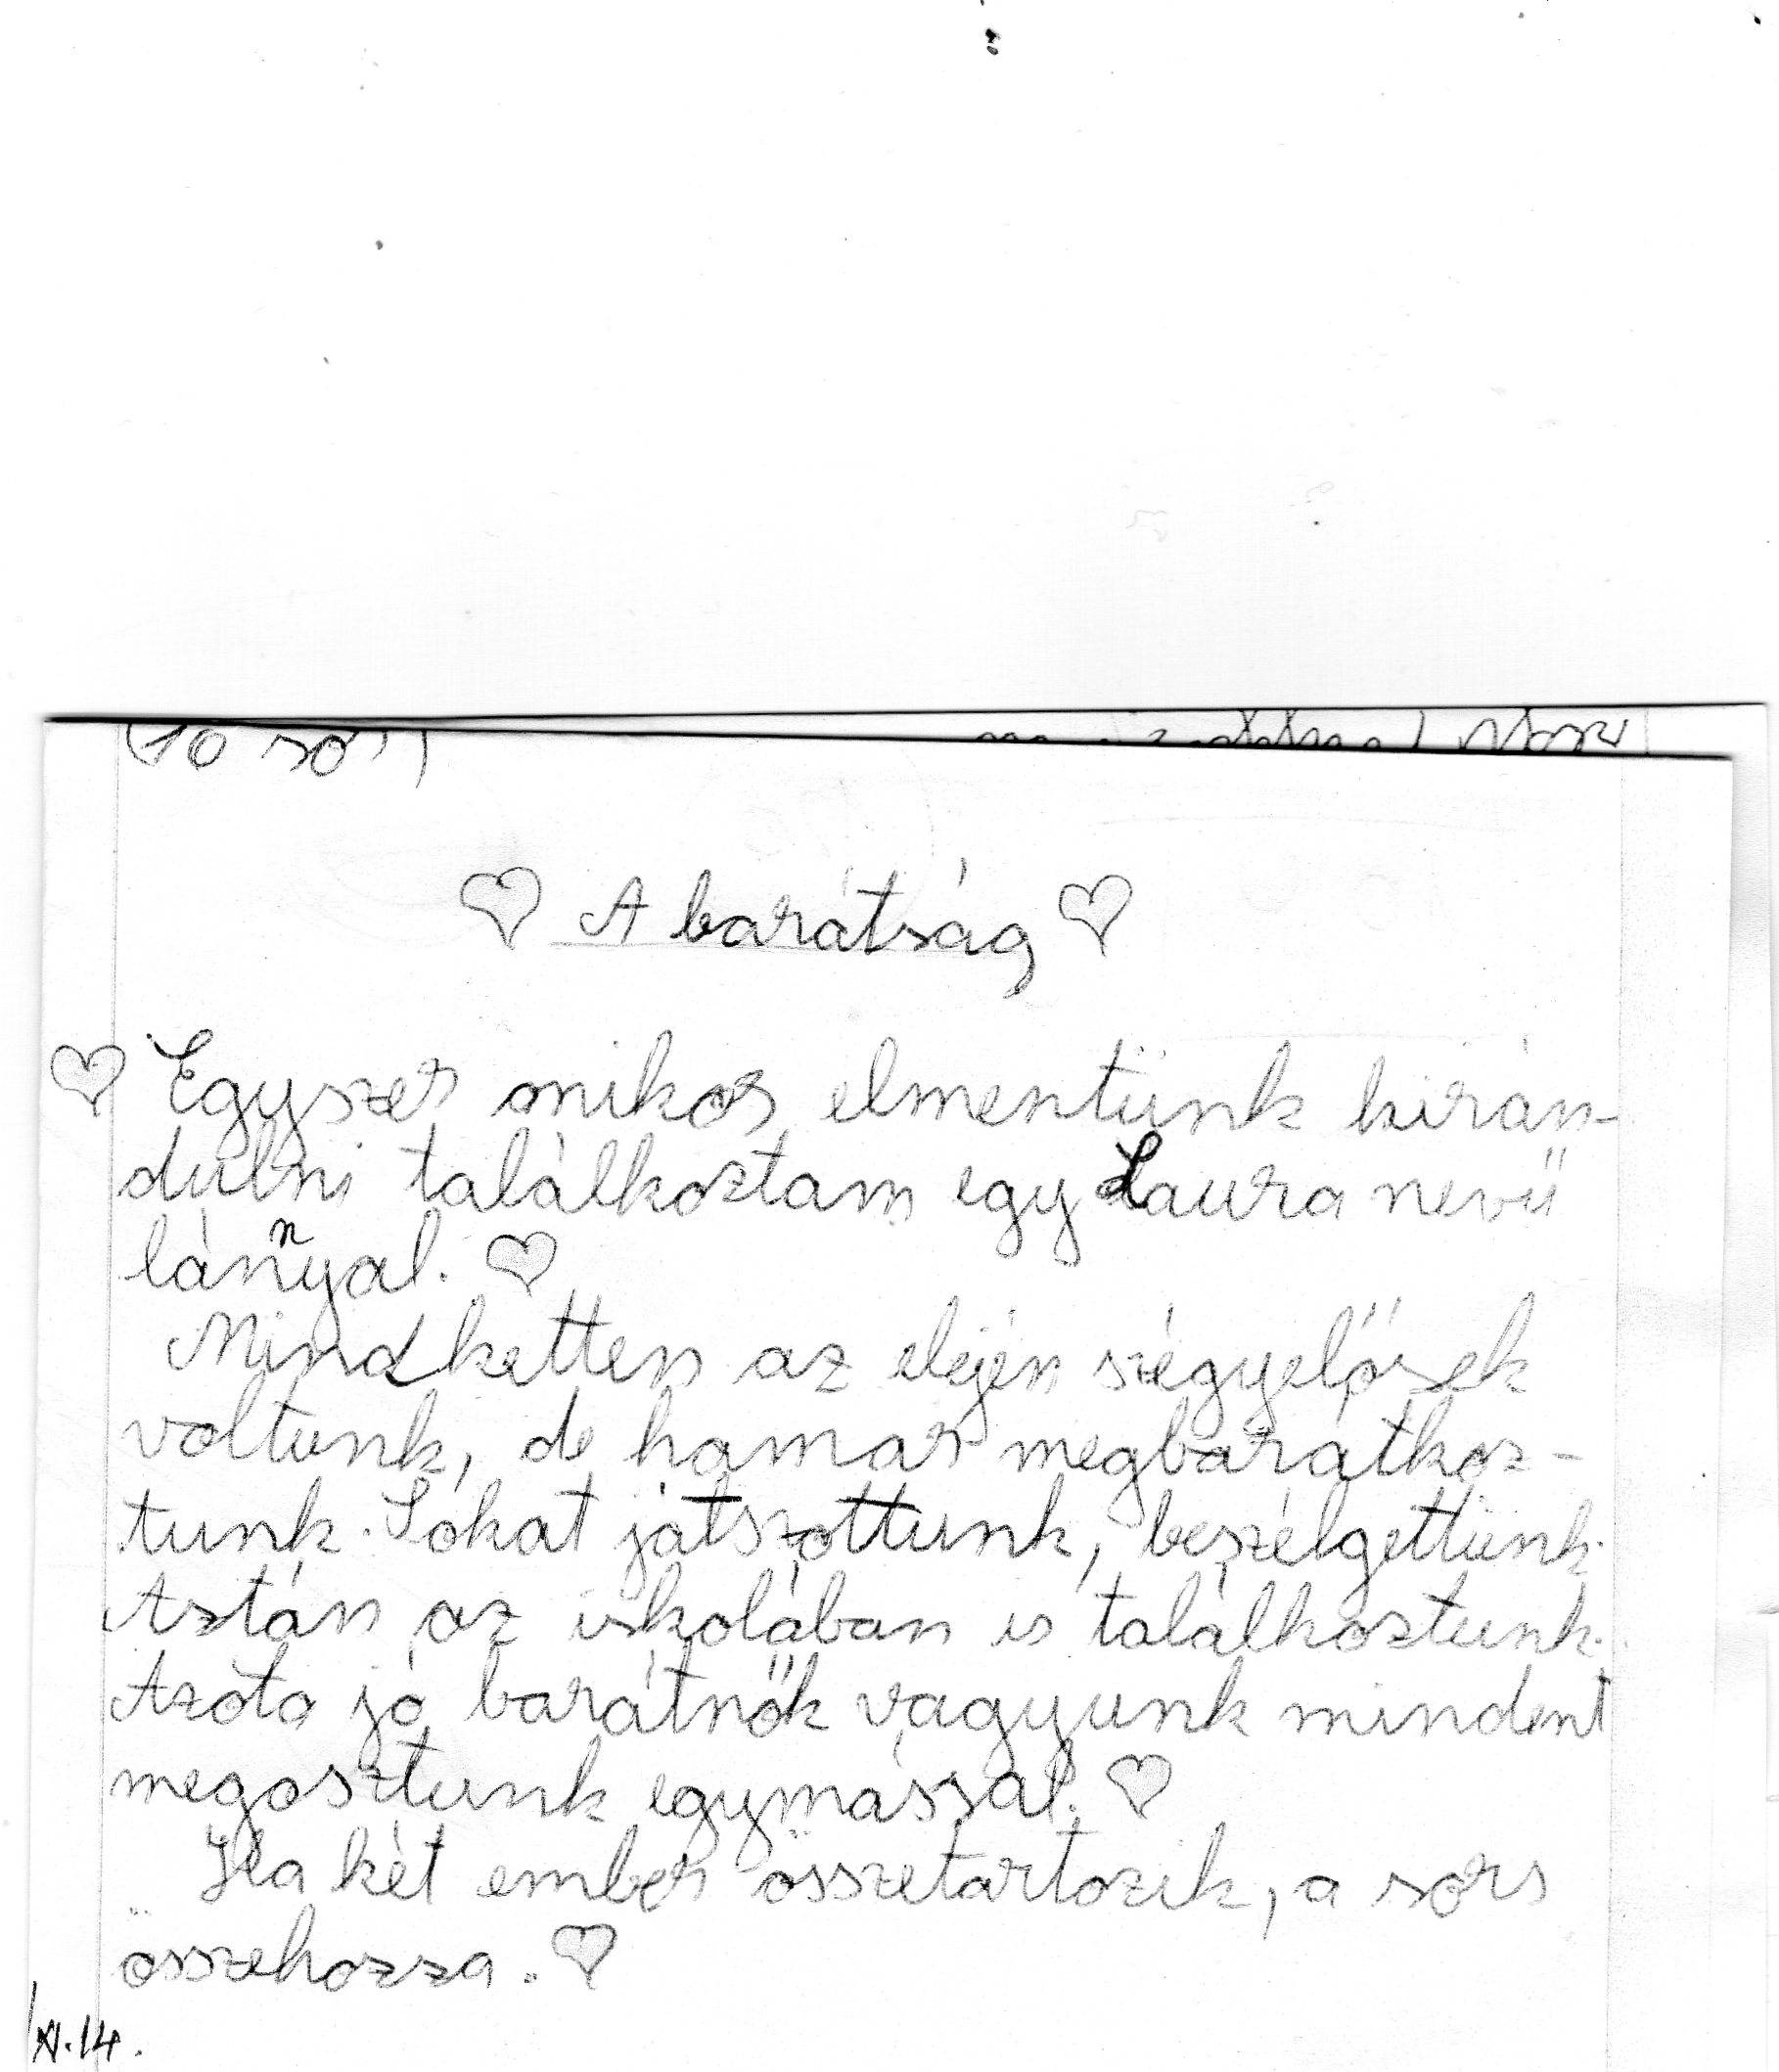 (10 sor)
A barátság
Egyszer mikor elmentünk kirán-
dulni találkoztam egy Laura nevű
lánnyal.
Mindketten az elején szégyelősek
voltunk, de hamar megbarátkoz-
tunk. Sokat játszottunk, beszélgettünk.
Aztán az iskolában is találkoztunk.
Azóta jó barátnők vagyunk mindent
megosztunk egymással.
Ha két ember összetartozik, a sors
összehozza.
XI.14.